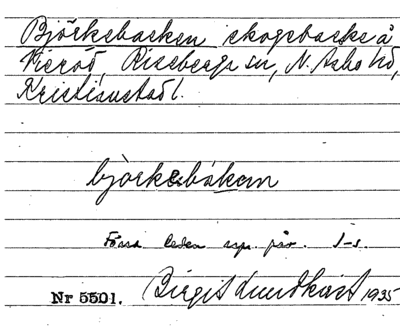 Björkebacken skogsbacke å
Vieröd, Risebergs sn, N. Åsbo hd,
Kristianstads l.
björkebáken
Förra leden
Nr 5501. Birgit Lundkvist 1935